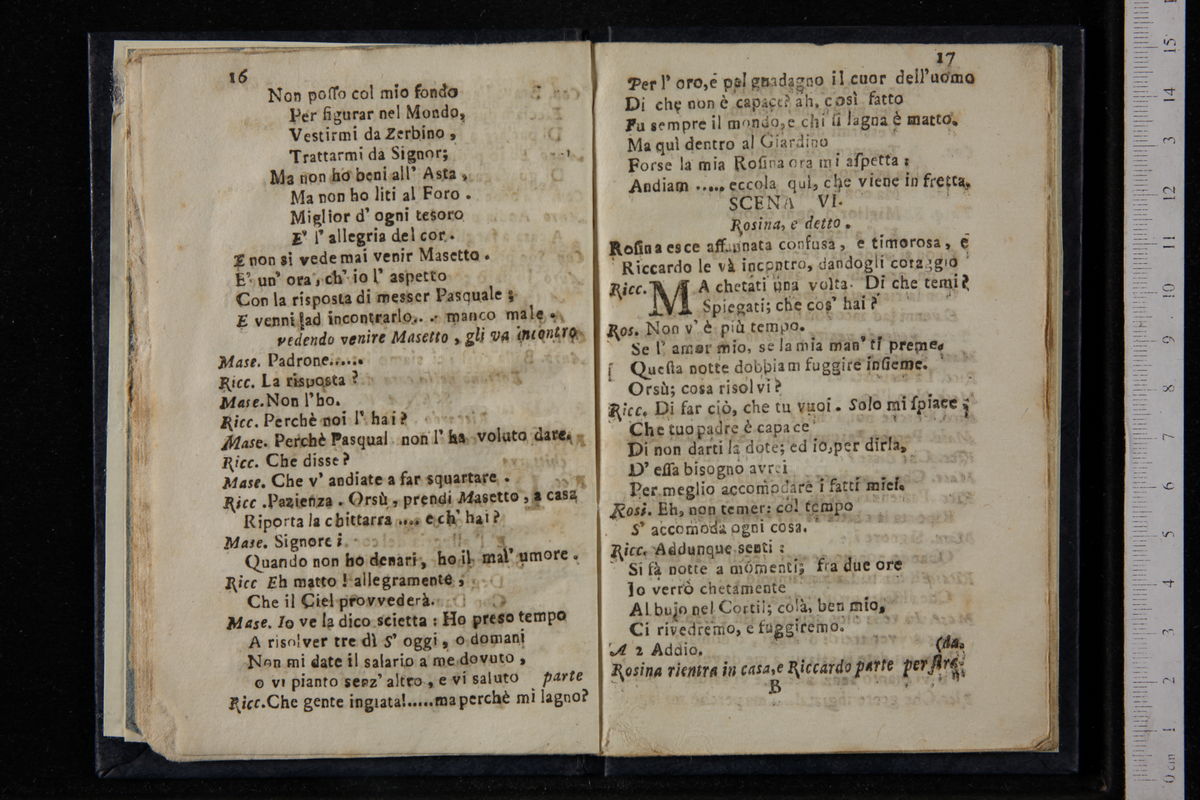 16
Non poſſo col mio fondo
Per figurar nel Mondo,
Vestirmi da Zerbino,
Trattarmi da Signor;
Ma non ho beni all' Asta,
Ma non ho liti al Foro.
Miglior d' ogni tesoro
E' l' allegria del cor.
E non si vede mai venir Masetto.
E' un' ora, ch' io l' aspetto
Con la risposta di messer Pasquale;
E venni ad incontrarlo... manco male.
vedendo venire Masetto, gli va incontro
Mase. Padrone......
Ricc. La risposta?
Mase. Non l'ho.
Ricc. Perchè noi l' hai?
Mase. Perchè Pasqual non l' ha voluto dare.
Ricc. Che disse?
Mase. Che v' andiate a far squartare.
Ricc. Pazienza. Orsù, prendi Masetto, a casa
Riporta la chittarra .... e ch' hai?
Mase. Signore;
Quando non ho denari, ho il mal' umore.
Ricc Eh matto! allegramente,
Che il Ciel provvederà.
Mase. Io ve la dico scietta: Ho preso tempo
A risolver tre dì S' oggi, o domani
Non mi date il salario a me dovuto,
o vi pianto senz' altro, e vi saluto parte
Ricc. Che gente ingrata!.....ma perchè mi lagno?
17
Per l' oro, e pel guadagno il cuor dell'uomo
Di che non è capace? ah, così fatto
Fu sempre il mondo, e chi ſi lagna è matto.
Ma quì dentro al Giardino
Forse la mia Roſina ora mi aſpetta:
Andiam ..... eccola quì, che viene in fretta.
SCENA VI.
Rosina, e detto.
Roſina esce affannata confusa, e timorosa, e
Riccardo le và incontro, dandogli coraggio
Ricc. MA chetati una volta. Di che temi?
Spiegati; che cos' hai?
Ros. Non v' è più tempo.
Se l' amor mio, se la mia man' ti preme.
Queſta notte dobbiam fuggire inſieme.
Orsù; cosa risolvi?
Ricc. Di far ciò, che tu vuoi. Solo mi ſpiace;
Che tuo padre è capace
Di non darti la dote; ed io, per dirla,
D' eſſa bisogno avrei
Per meglio accomodare i fatti miei.
Rosi. Eh, non temer: col tempo
S' accomoda ogni cosa.
Ricc. Addunque senti:
Si fà notte a momenti; fra due ore
Io verrò chetamente
Al bujo nel Cortil; colà, ben mio,
Ci rivedremo, e fuggiremo.
A 2 Addio. (da.
Rosina rientra in casa, e Riccardo parte per ſtra
B